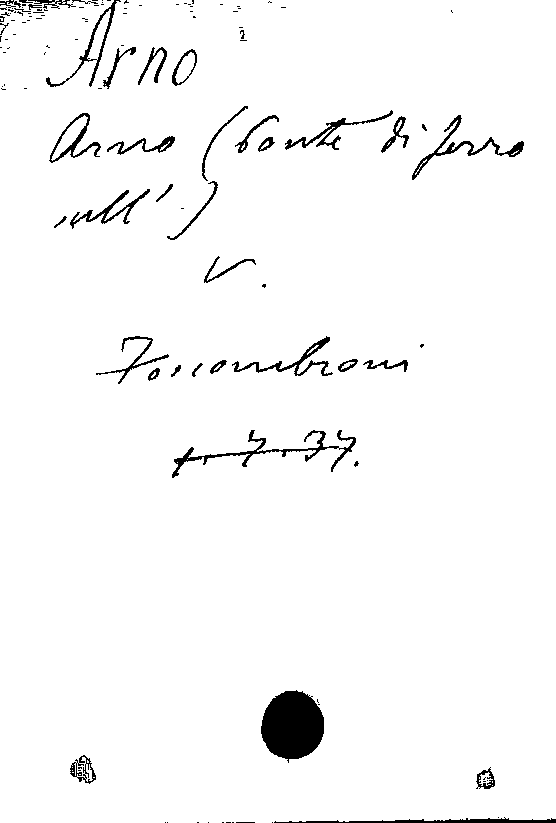 Arno
Arno (Ponte di ferro
sull')
V.
Fossombroni
1.7.37.